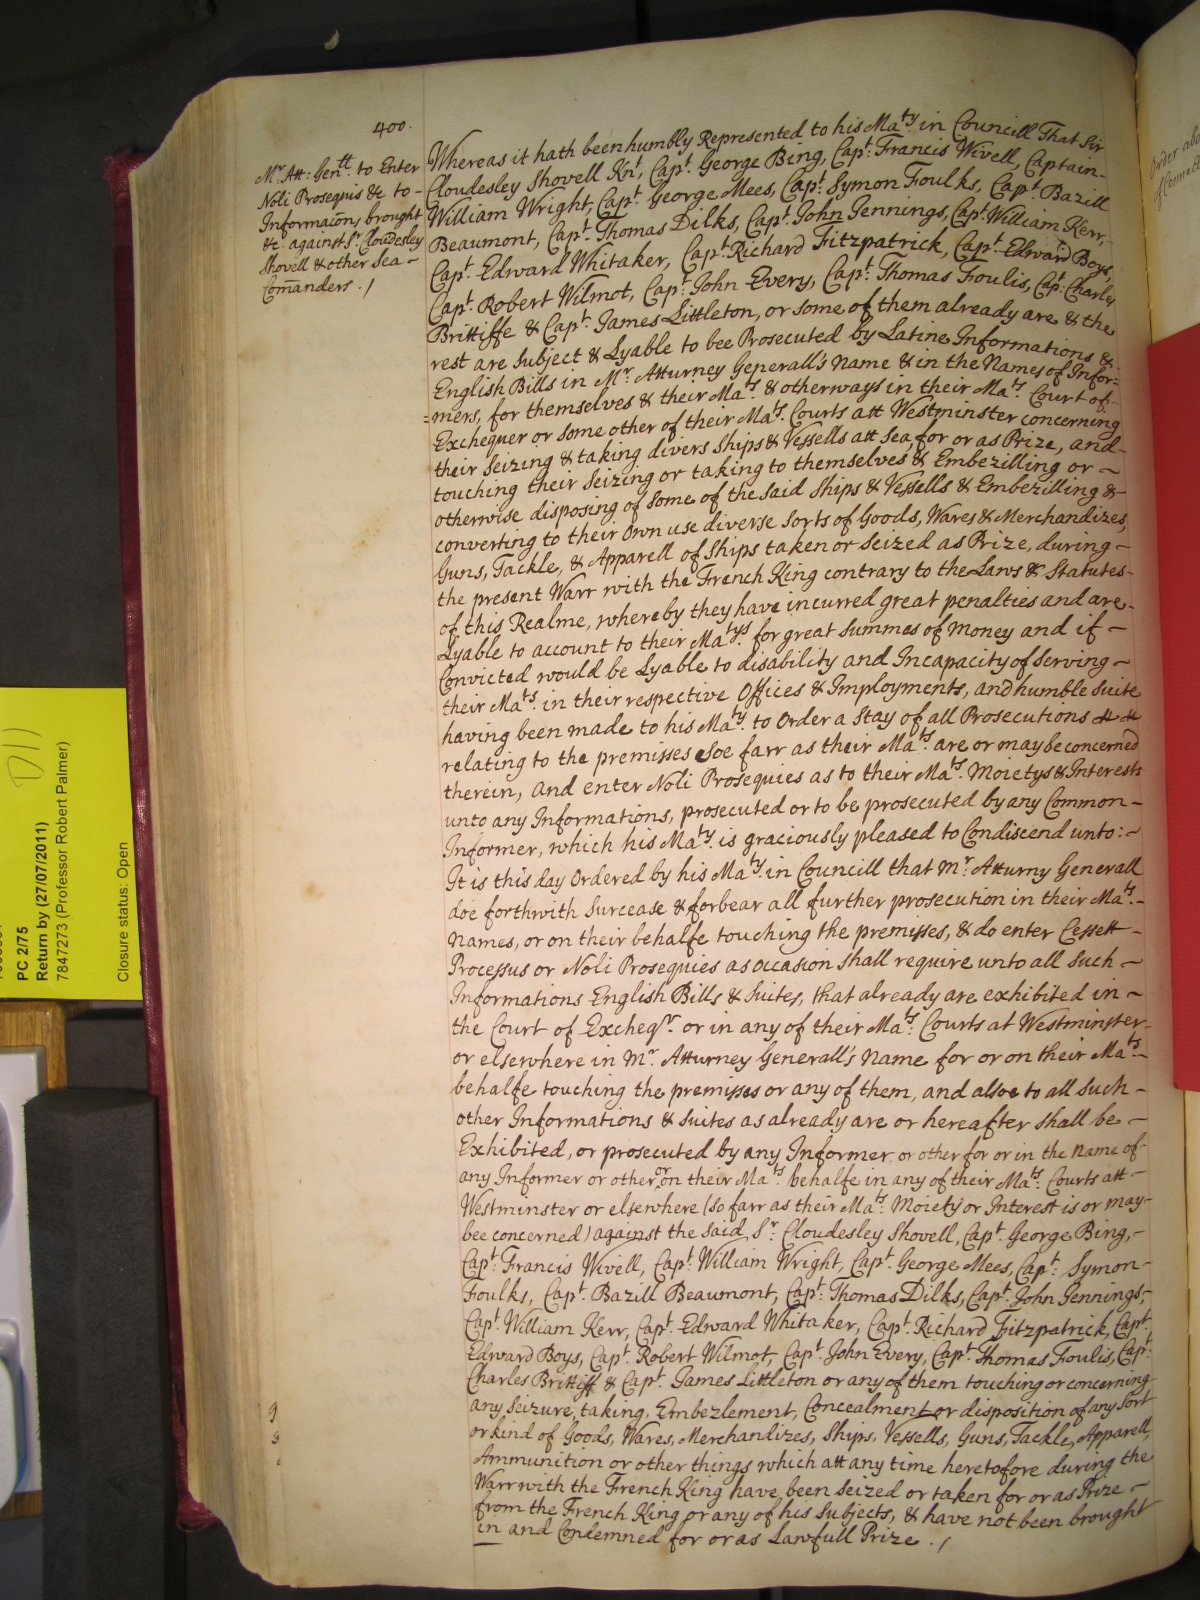 400.
Mr. Att: Genll. to Enter
Noli Prosequis &c to -
Informacons brought
&c. against Sr. Cloudesley
Shovell & other Sea -
Comanders ./
Whereas it hath been humbly Represented to his Maty. in Councill That Sir
Cloudesley Shovell Knt, Capt. George Bing, Capt. Francis Wivell, Captain -
William Wright, Capt. George Mees, Capt. Symon Foulks, Capt. Bazill
Beaumont, Capt. Thomas Dilks, Capt. John Jennings, Capt. William Kerr, -
Capt. Edward Whitaker, Capt. Richard Fitzpatrick, Capt. Edward Boys,
Capt. Robert Wilmot, Capt. John Every, Capt. Thomas Foulis, Capt. Charles
Brittiffe & Capt. James Littleton, or some of them already are & the
rest are Subject & Lyable to bee Prosecuted by Latine Informations &
English Bills in Mr. Atturney Generall's Name & in the Names of Infor=
=mers, for themselves & their Mats. & otherways in their Mats. Court of -
Exchequer or some other of their Mats. Courts att Westminster concerning
their Seizing & taking divers Ships & Vessells att Sea, for or as Prize, and -
touching their Seizing or taking to themselves & Embezilling or -
otherwise disposing of some of the said Ships & Vessells & Embezilling & -
converting to their Own use diverse Sorts of Goods, Wares & Merchandizes,
Guns, Tackle, & Apparell of Ships taken or Seized as Prize, during -
the present Warr with the French King contrary to the Laws & Statutes -
of this Realme, whereby they have incurred great penalties and are -
Lyable to account to their Matys. for great Summes of Money and if -
Convicted would be Lyable to disability and Incapacity of Serving -
their Mats. in their respective Offices & Imployments, and humble Suite
having been made to his Maty. to Order a Stay of all Prosecutions
relating to the premisses soe farr as their Mats. are or may be concerned
therein, and enter Noli Prosequies as to their Mats. Moietys & Interests
unto any Informations, prosecuted or to be prosecuted by any Common -
Informer, which his Maty. is graciously pleased to Condiscend unto: -
It is this day Ordered by his Maty. in Councill that Mr. Atturny Generall
doe forthwith Surcease & forbear all further prosecution in their Mats. -
Names, or on their behalfe touching the premisses, & do enter Cessett -
Processus or Noli Prosequies as occasion Shall require unto all Such -
Informations English Bills & Suites, that already are exhibited in -
the Court of Excheqr. or in any of their Mats. Courts at Westminster -
or elsewhere in Mr. Atturney Generall's Name for or on their Mats. -
behalfe touching the premisses or any of them, and alsoe to all Such -
other Informations & Suites as already are or hereafter Shall be -
Exhibited, or prosecuted by any Informer or other for or in the Name of
any Informer or other or on their Mats. behalfe in any of their Mats. Courts att -
Westminster or elsewhere (so farr as their Mats. Moiety or Interest is or may -
bee concerned) against the said Sr. Cloudesley Shovell, Capt. George Bing, -
Capt. Francis Wivell, Capt. William Wright, Capt. George Mees, Capt. Symon -
Foulks, Capt. Bazill Beaumont, Capt. Thomas Dilks, Capt. John Jennings, -
Capt. William Kerr, Capt. Edward Whitaker, Capt. Richard Fitzpatrick, Capt.
Edward Boys, Capt. Robert Wilmot, Capt. John Every, Capt. Thomas Foulis, Capt.
Charles Brittiff & Capt. James Littleton or any of them touching or concerning
any Seizure, taking, Embezlement, Concealment or disposition of any Sort
or kind of Goods, Wares, Merchandizes, Ships, Vessells, Guns, Tackle, Apparell,
Ammunition or other things which att any time heretofore during the
Warr with the French King have been Seized or taken for or as Prize -
from the French King or any of his Subjects, & have not been brought
in and Condemned for or as Lawfull Prize ./
PC 2/75
Return by (27/07/2011)
7847273 (Professor Robert Palmer)
Closure status: Open
D11